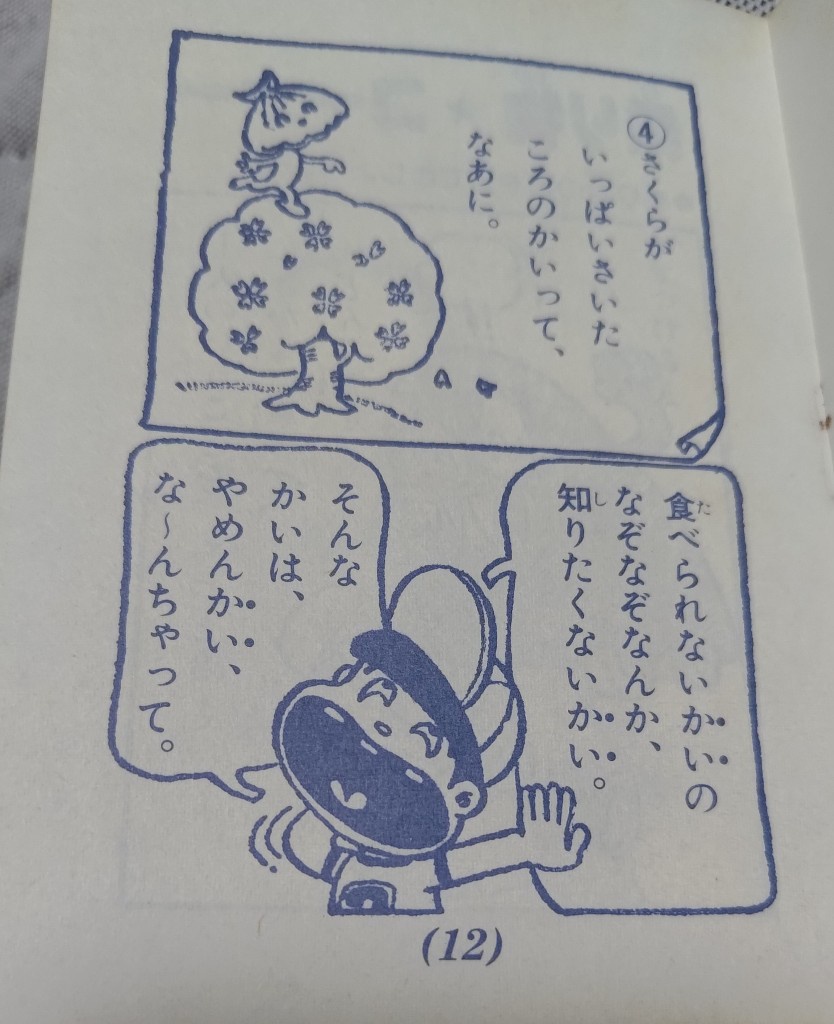 ④さくらが
いっぱいさいた
ころのかいって、
なあに。
食べられないかいの
なぞなぞなんか、
知りたくないかい。
そんな
かいは、
やめんかい、
な〜んちゃって。
(12)